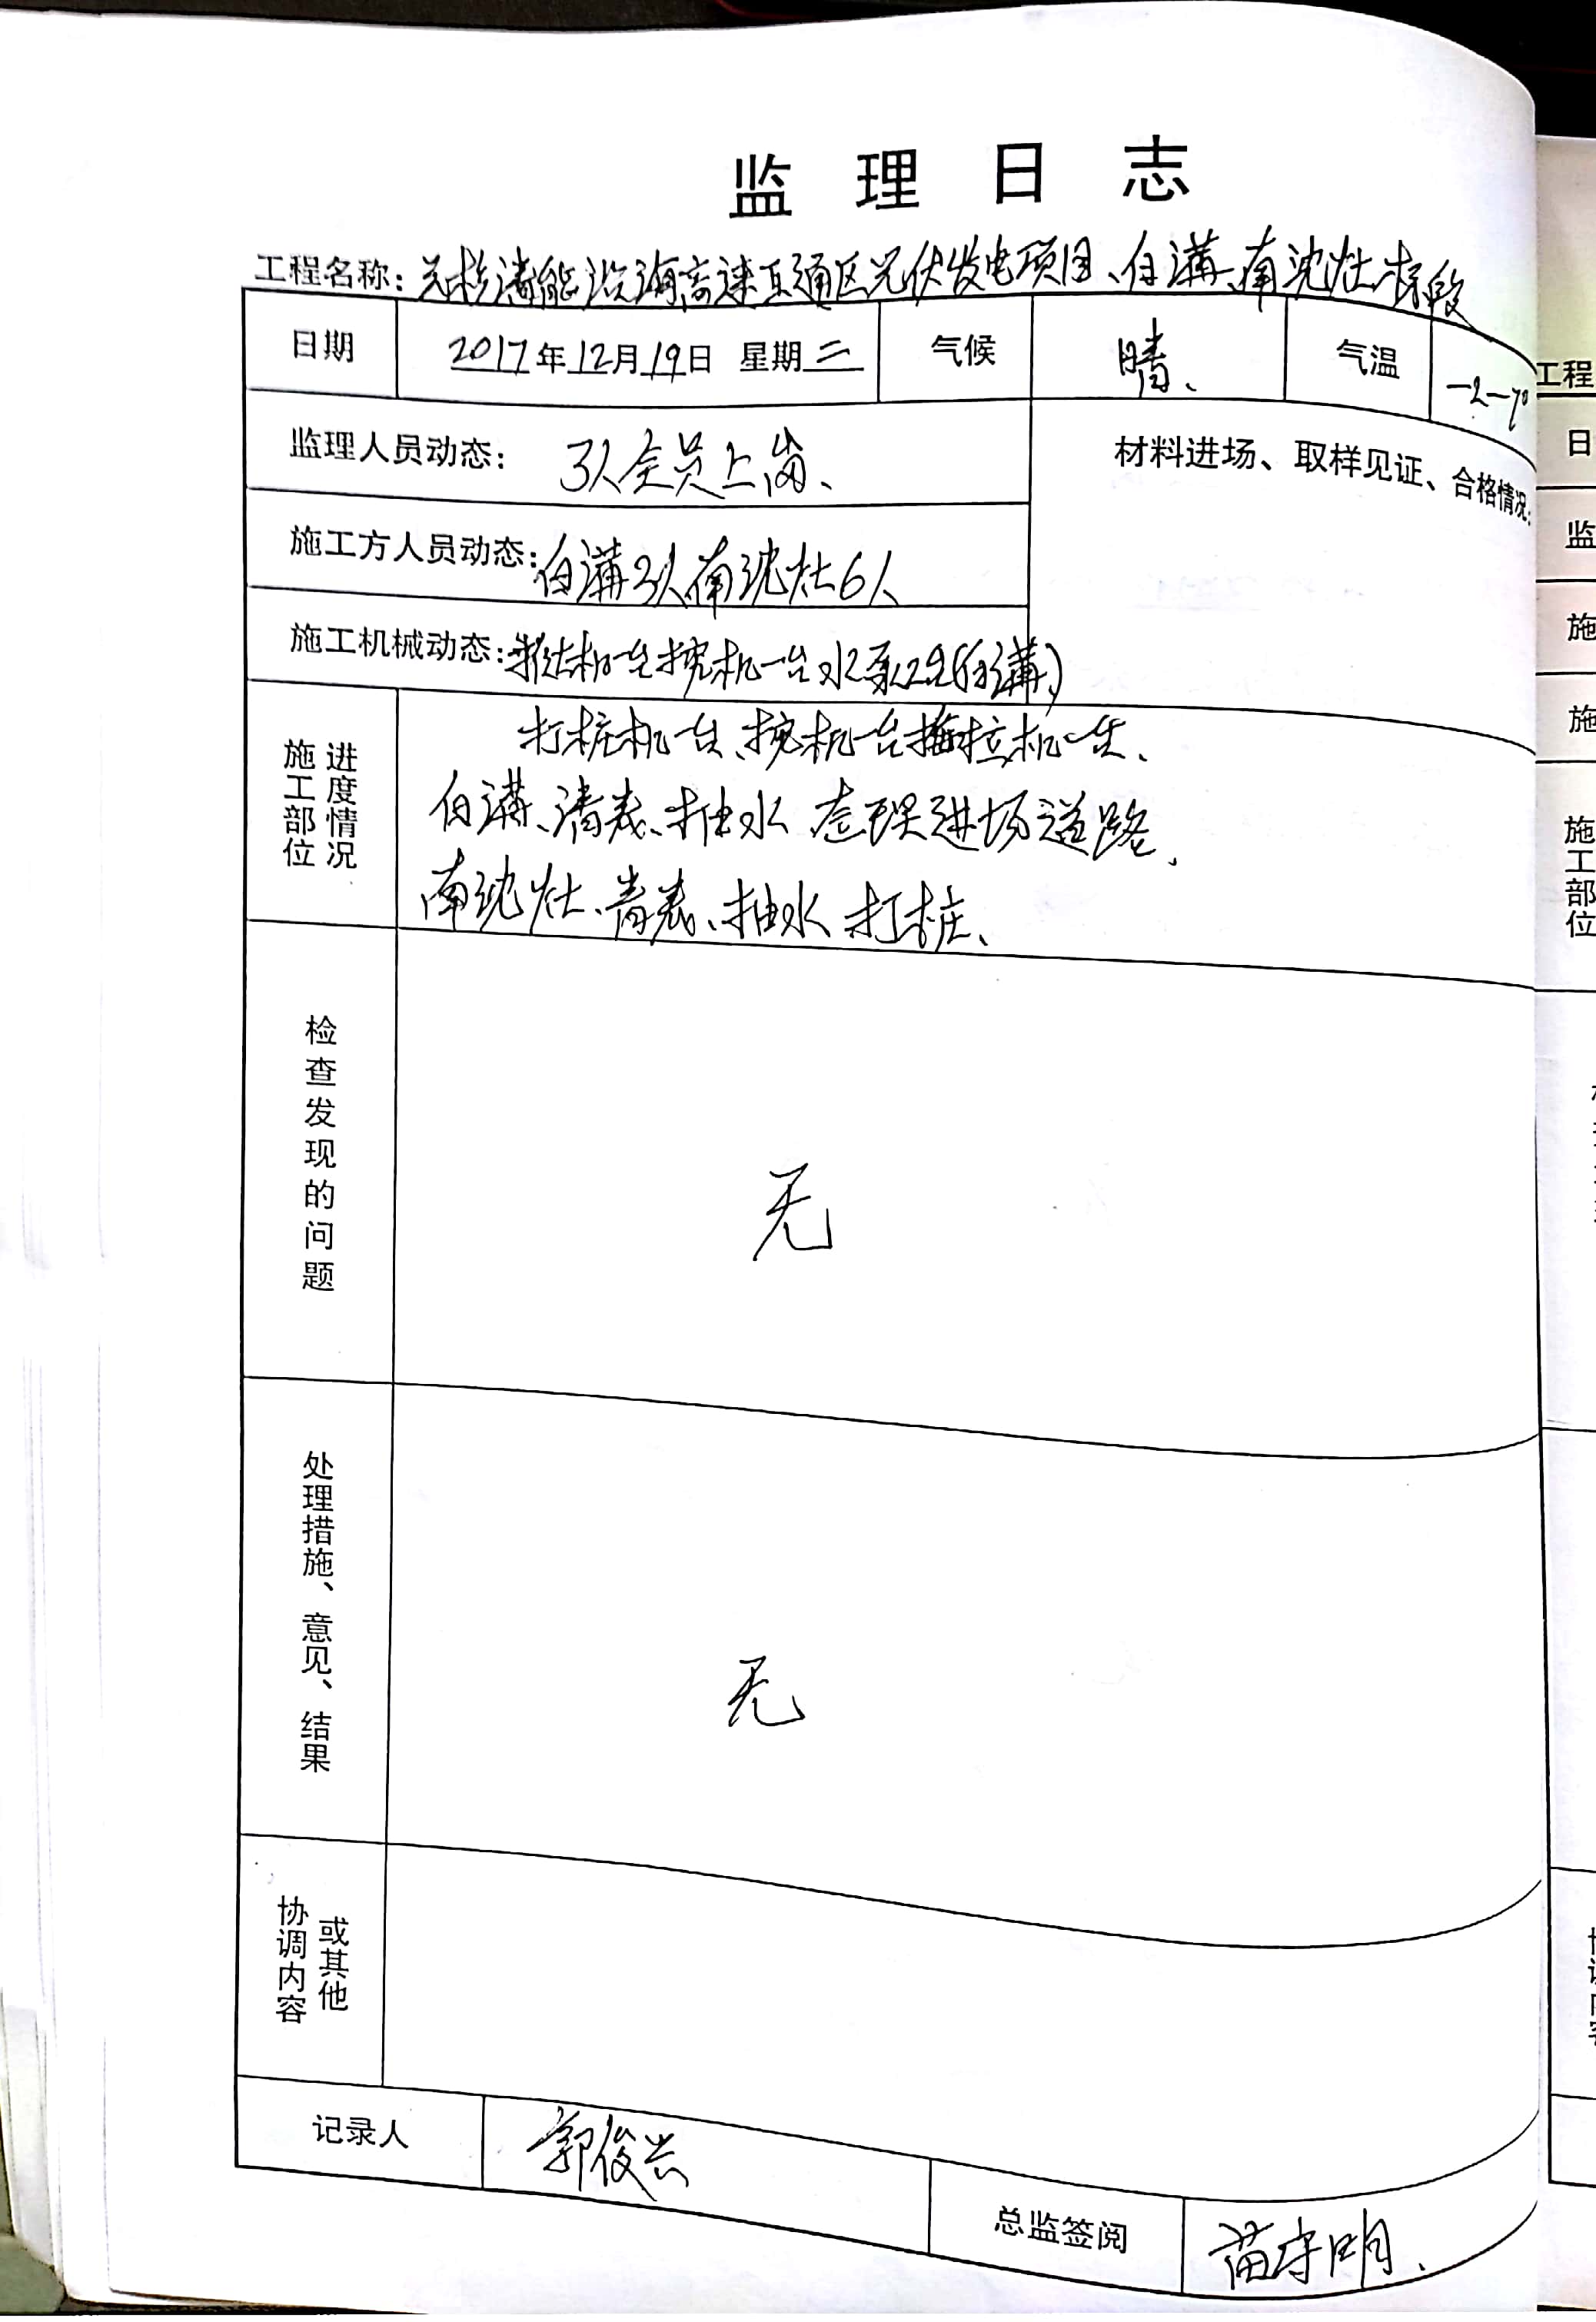 监理日志
工程名称：元核清能沿海高速互通区光伏发电项目、白溝、南沈灶标段
日期 2017年12月19日 星期二 气候 晴、 气温 -2—7°
监理人员动态： 3人全员上岗、
材料进场、取样见证、合格情况：
施工方人员动态：白溝3人南沈灶6人
施工机械动态：推土机一台挖机一台水泵2台(白溝)
打桩机一台、挖机一台 机一台、
施工部位 进度情况
白溝、清表、抽水 整理进场道路、
南沈灶、青表、抽水 打桩、
检查发现的问题
无
处理措施、意见、结果
无
协调内容 或其他
记录人 郭俊兴
总监签阅 苗守明、
工程
日
监
施
施
施工部位